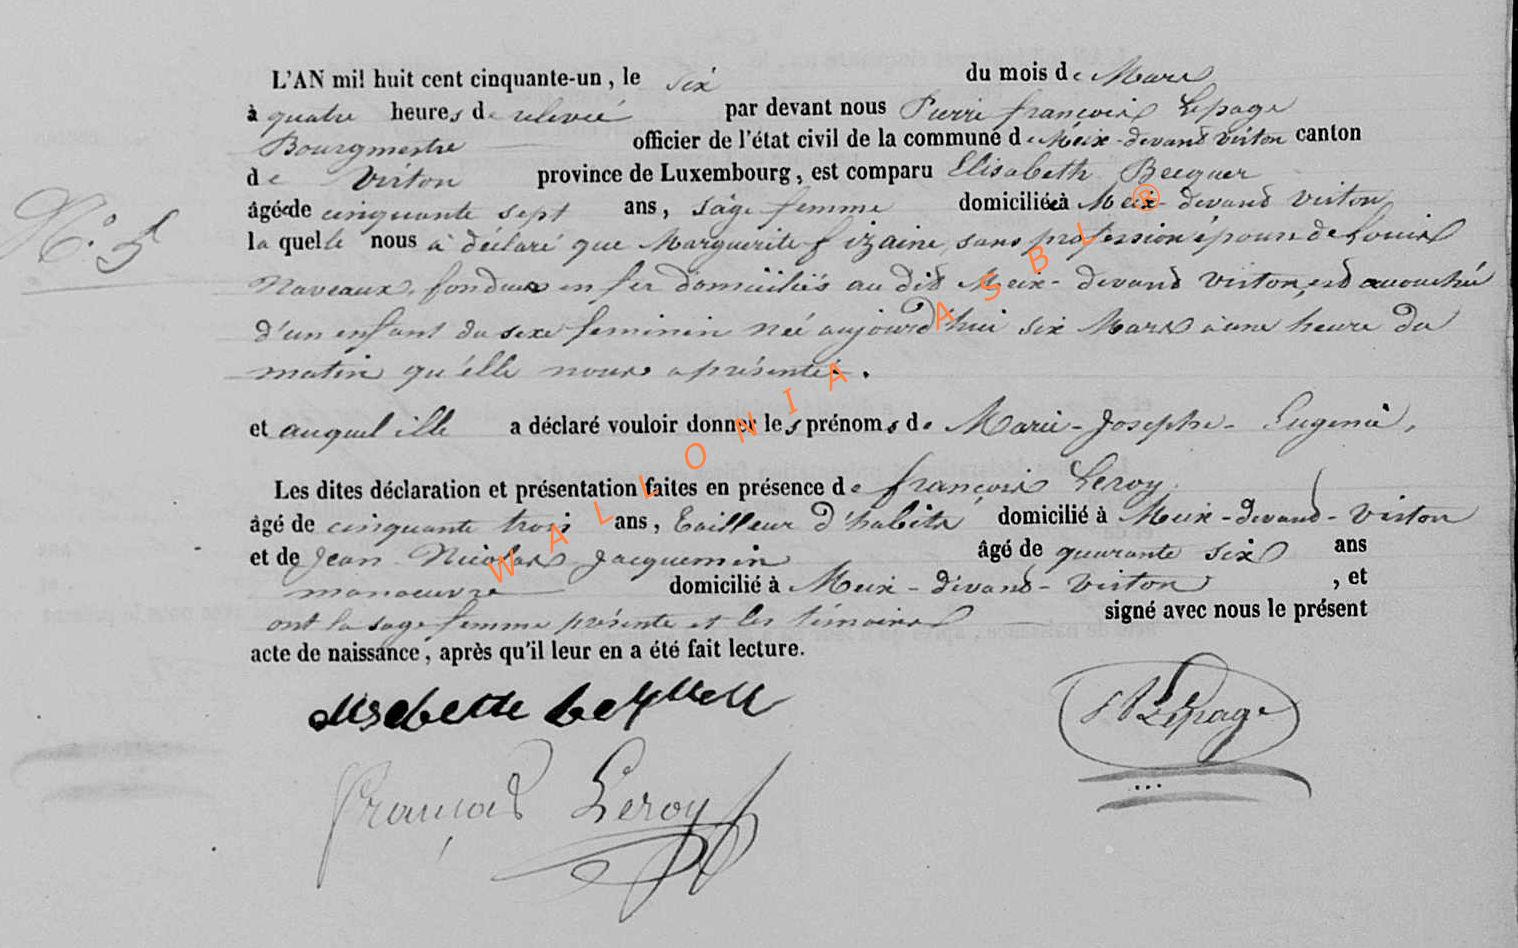 L'AN mil huit cent cinquante-un, le six du mois de Mars
à quatre heures de relevée par devant nous Pierre françois Lepage
Bourgmestre officier de l'état civil de la commune de Meix-devant virton canton
de Virton province de Luxembourg, est comparu Elisabeth Becquer
âgée de cinquante sept ans, sage femme domiciliée à Meix-devant virton
N.° 5
la quelle nous à déclaré que Marguerite fizaine, sans profession épouse de Louis
Naveaux, fondeur en fer domiciliés au dit Meix-devant virton, est accouchée
d'un enfant du sexe feminin née aujourd'hui six Mars à une heure du
matin qu'elle nous a présentée.
et auquel elle a déclaré vouloir donner les prénoms de Marie-Josephe-Eugenie,
Les dites déclaration et présentation faites en présence de françois Leroy
âgé de cinquante trois ans, tailleur d'habits domicilié à Meix-devant-virton
et de Jean Nicolas Jacquemin âgé de quarante six ans
manoeuvre domicilié à Meix-devant-virton, et
ont la sage femme présente et les témoins signé avec nous le présent
acte de naissance, après qu'il leur en a été fait lecture.
françois Leroy
Lepage
WALLONIA ASBL ®